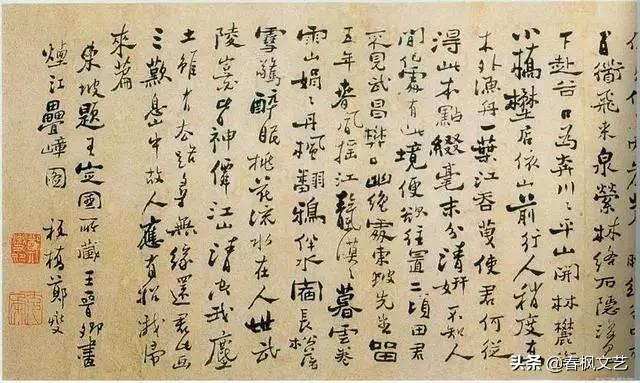 百衜飛来泉縈林絡石隱
下赴谷口為奔川々平山開林麓
小橋壄店依山前行人稍度喬
木外漁舟一葉江吞使君何從
得此本點綴毫末分清妍不知人
間何處有此境便欲徃置二頃田君
不見武昌樊口幽絕處東坡先生留
五年春風搖江漠々暮雲卷
雨山娟々丹楓翻鴉伴水宿長松落
雪驚醉眠桃花流水在人世武
陵豈皆神僊江山清空我塵
土雖有去路尋無緣還君此画
三歎息山中故人應有招我歸
來篇
東坡題王定國所藏王晉卿畫
煙江疊嶂圖 板橋鄭燮
头条 @春枫文艺